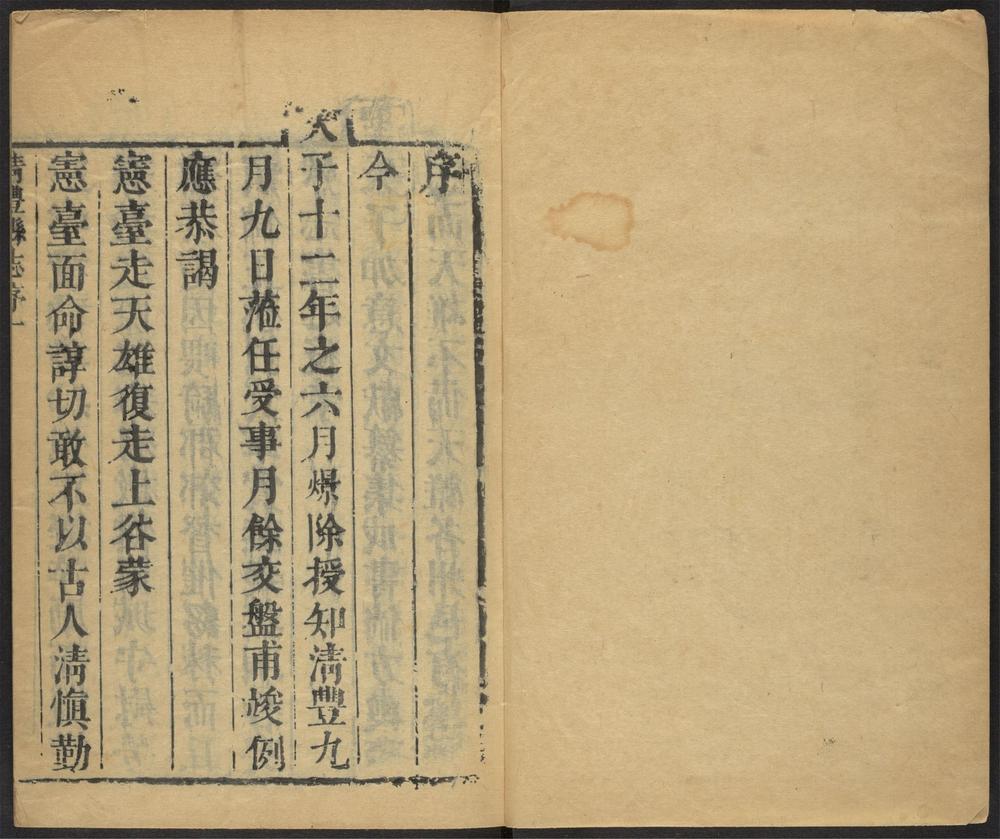 序
今
天子十二年之六月燝除授知清豐九
月九日蒞任受事月餘交盤甫竣例
應恭謁
憲臺走天雄復走上谷蒙
憲臺面命諄切敢不以古人清慎勤
清豐縣志序一